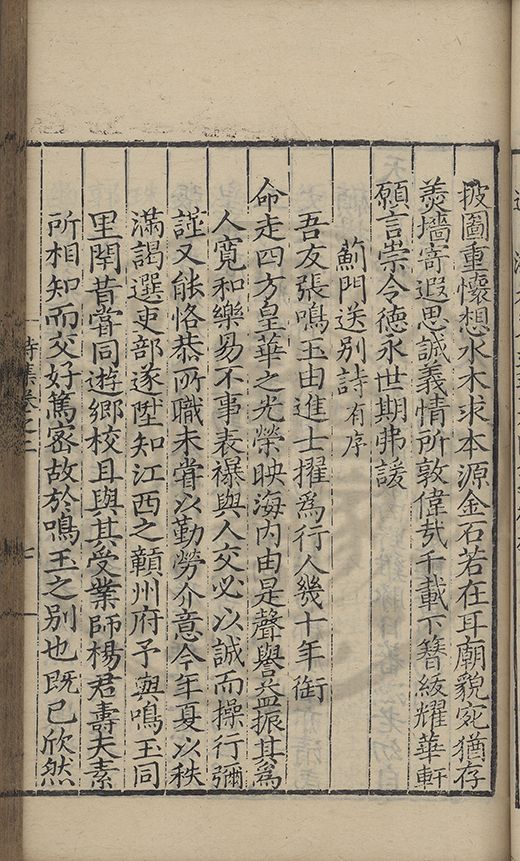 披圖重懷想水木求本源金石若在耳廟貌宛猶存
羮墻寄遐思誠義情所敦偉㢤千載下簪紱耀華軒
願言崇令德永世期弗諼
薊門送別詩有序
吾友張鳴玉由進士擢為行人幾十年銜
命走四方皇華之光榮映海内由是聲譽益振其為
人寛和樂易不事表襮與人交必以誠而操行彌
謹又能恪恭所職未嘗以勤勞介意今年夏以秩
滿謁選吏部遂陞知江西之贑州府予與鳴玉同
里閈昔嘗同遊鄉校且與其受業師楊君壽夫素
所相知而交好篤密故於鳴玉之別也既已欣然
詩集卷之二
七